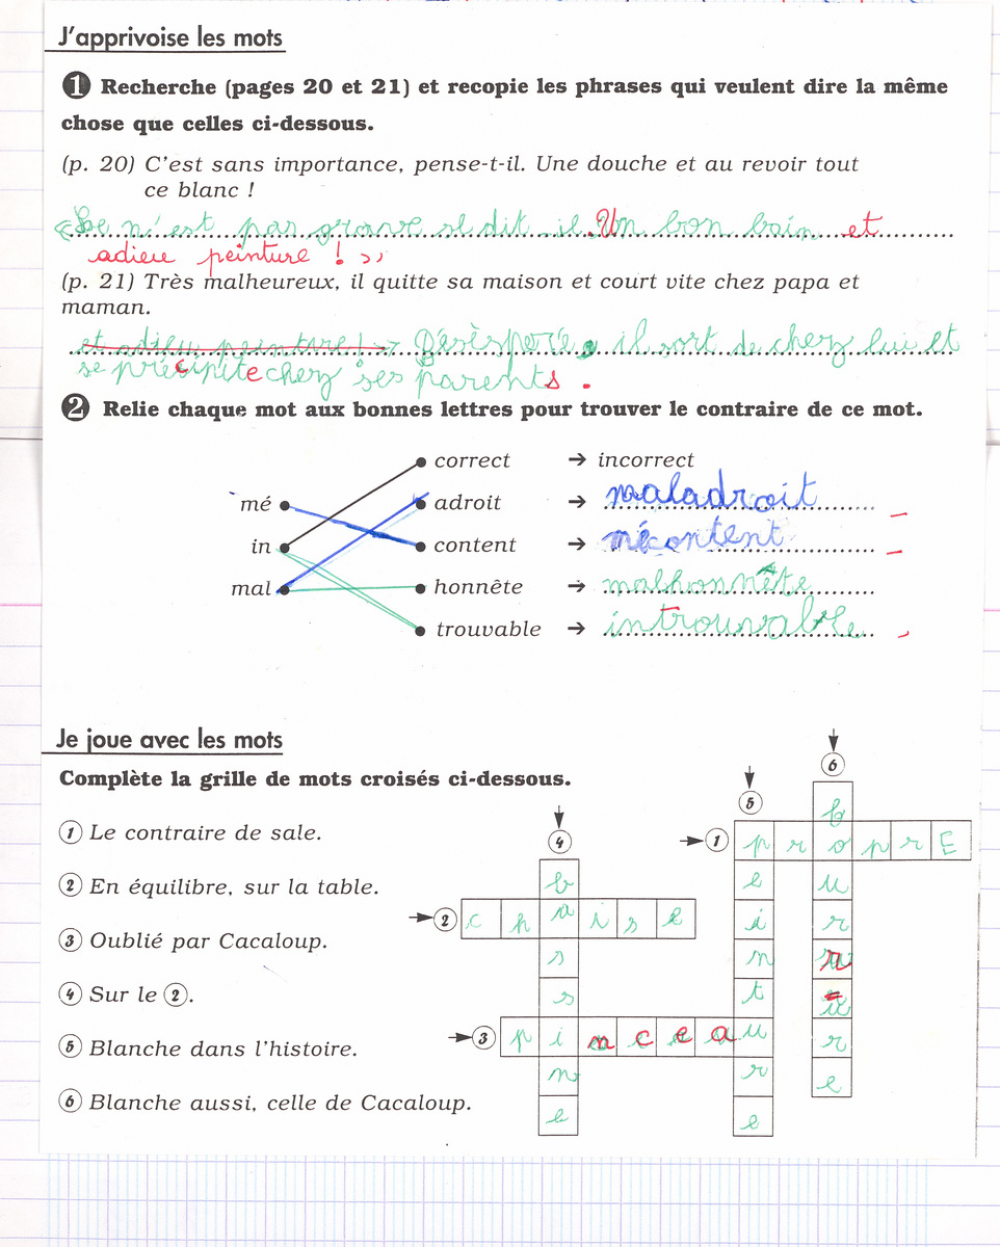 J'apprivoise les mots
1 Recherche (pages 20 et 21) et recopie les phrases qui veulent dire la même
chose que celles ci-dessous.
(p. 20) C'est sans importance, pense-t-il. Une douche et au revoir tout
ce blanc !
« Ce n'est pas grave se dit-il. Un bon bain et
adieu peinture ! »
(p. 21) Très malheureux, il quitte sa maison et court vite chez papa et
maman.
et adieu peinture ! » Désèsperé, il sort de chez lui et
se précipite chez ses parents.
2 Relie chaque mot aux bonnes lettres pour trouver le contraire de ce mot.
correct → incorrect
mé adroit → maladroit
in content → mécontent
mal honnête → malhonnête
trouvable → introuvable
Je joue avec les mots
Complète la grille de mots croisés ci-dessous.
6
5
b
1 Le contraire de sale.
4
1 p r o p r E
2 En équilibre, sur la table.
b e u
2 c h a i s e i r
3 Oublié par Cacaloup.
s n r
4 Sur le 2.
s t u
3 p i n c e a u r
5 Blanche dans l'histoire.
n r e
6 Blanche aussi, celle de Cacaloup.
e e